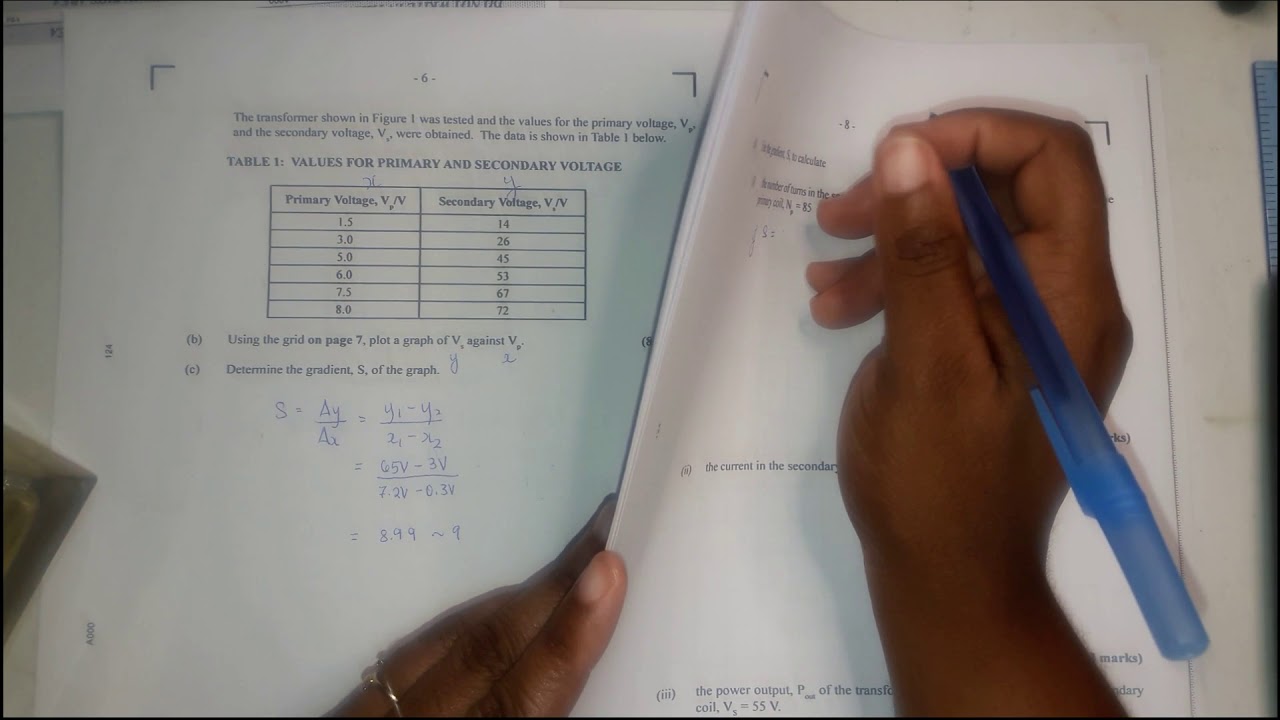 - 6 -
The transformer shown in Figure 1 was tested and the values for the primary voltage, Vp,
and the secondary voltage, Vs, were obtained. The data is shown in Table 1 below.
TABLE 1: VALUES FOR PRIMARY AND SECONDARY VOLTAGE
x y
Primary Voltage, Vp/V Secondary Voltage, Vs/V
1.5 14
3.0 26
5.0 45
6.0 53
7.5 67
8.0 72
(b) Using the grid on page 7, plot a graph of Vs against Vp.
y x
(c) Determine the gradient, S, of the graph.
S = Δy/Δx = y₁ - y₂/x₁ - x₂
= 65V - 3V/7.2V - 0.3V
= 8.99 ~ 9
124
A000
(8
- 8 -
to calculate
the number of turns in the
primary coil, Np = 85
S =
ks)
(ii) the current in the secondary
marks)
(iii) the power output, Pout of the transfo
coil, Vs = 55 V.
ndary